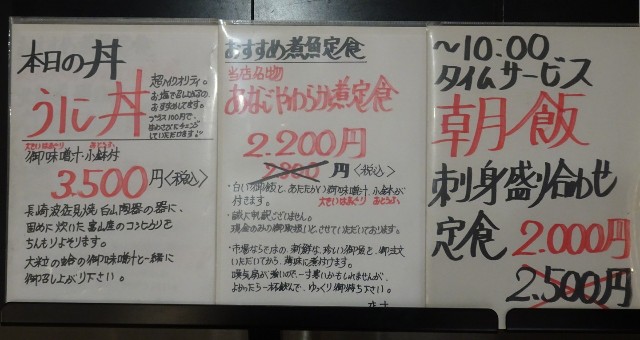 本日の丼
うに丼
超ハイクオリティ。
お塩で召し上がるの、
おすすめしてます。
プラス100円で、
していただけます♪
大きいはまぐり おとうふ
御味噌汁・小鉢付
3.500円〈税込〉
長崎波佐見焼 白山陶器の器に、
固めに炊いた富山産のコシヒカリを
ちんもりよそります。
大粒の蛤の御味噌汁と一緒に
御召し上がり下さい。
おすすめ煮魚定食
当店名物
あなごやわらか煮定食
2.200円
円〈税込〉
・白い御飯と、あたたかい御味噌汁、小鉢が
付きます。 大きいはまぐり おとうふ
・誠に申し訳ございません。
現金のみの御取扱いとさせていただいております。
・市場ならではの、新鮮な、珍しい御魚を、御注文
いただいてから、薄味に煮付けます。
換気扇が強いので、一寸寒いかもしれませんが、
よかったら一杯飲んで、ゆっくり御待ち下さい。
〜10:00
タイムサービス
朝ご飯
刺身盛り合わせ
定食 2.000円
2.500円